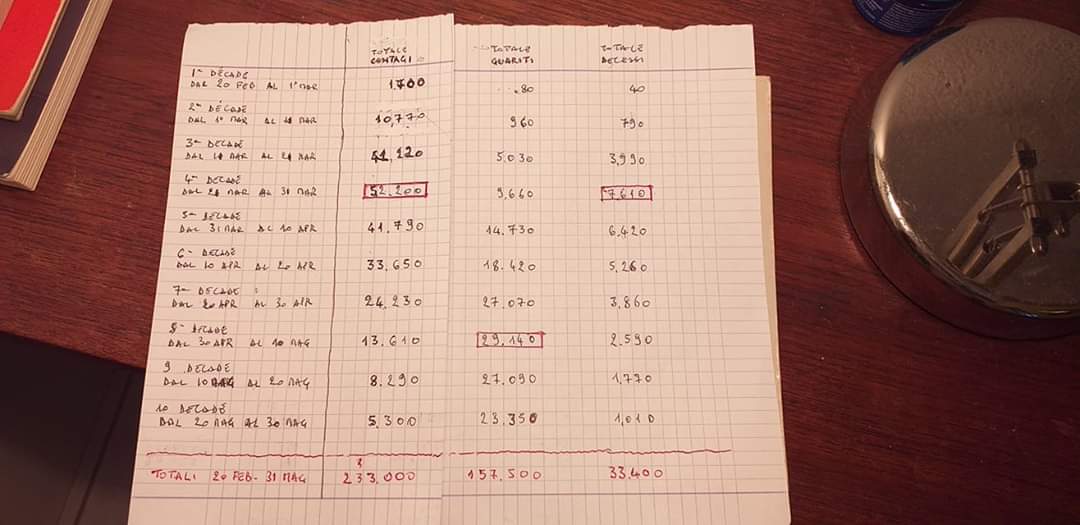 TOTALE TOTALE TOTALE
CONTAGI GUARITI DECESSI
1ª DECADE
DAL 20 FEB AL 1° MAR 1.700 80 40
2ª DECADE
DAL 1° MAR AL MAR 10,770 960 790
3ª DECADE
DAL MAR AL MAR 51.120 5.030 3,990
4ª DECADE
DAL MAR AL 31 MAR 52.200 9.660 7.610
5ª DECADE
DAL 31 MAR AL 10 APR 41.790 14.730 6,420
6ª DECADE
DAL 10 APR AL 20 APR 33.650 18.420 5,260
7ª DECADE
DAL 20 APR AL 30 APR 24,230 27.070 3.860
8ª DECADE
DAL 30 APR AL 10 MAG 13.610 29.140 2.590
9 DECADE
DAL 10 MAG AL 20 MAG 8.290 27.090 1,770
10 DECADE
DAL 20 MAG AL 30 MAG 5,300 23.350 1,010
TOTALI 20 FEB - 31 MAG 233.000 157.500 33.400